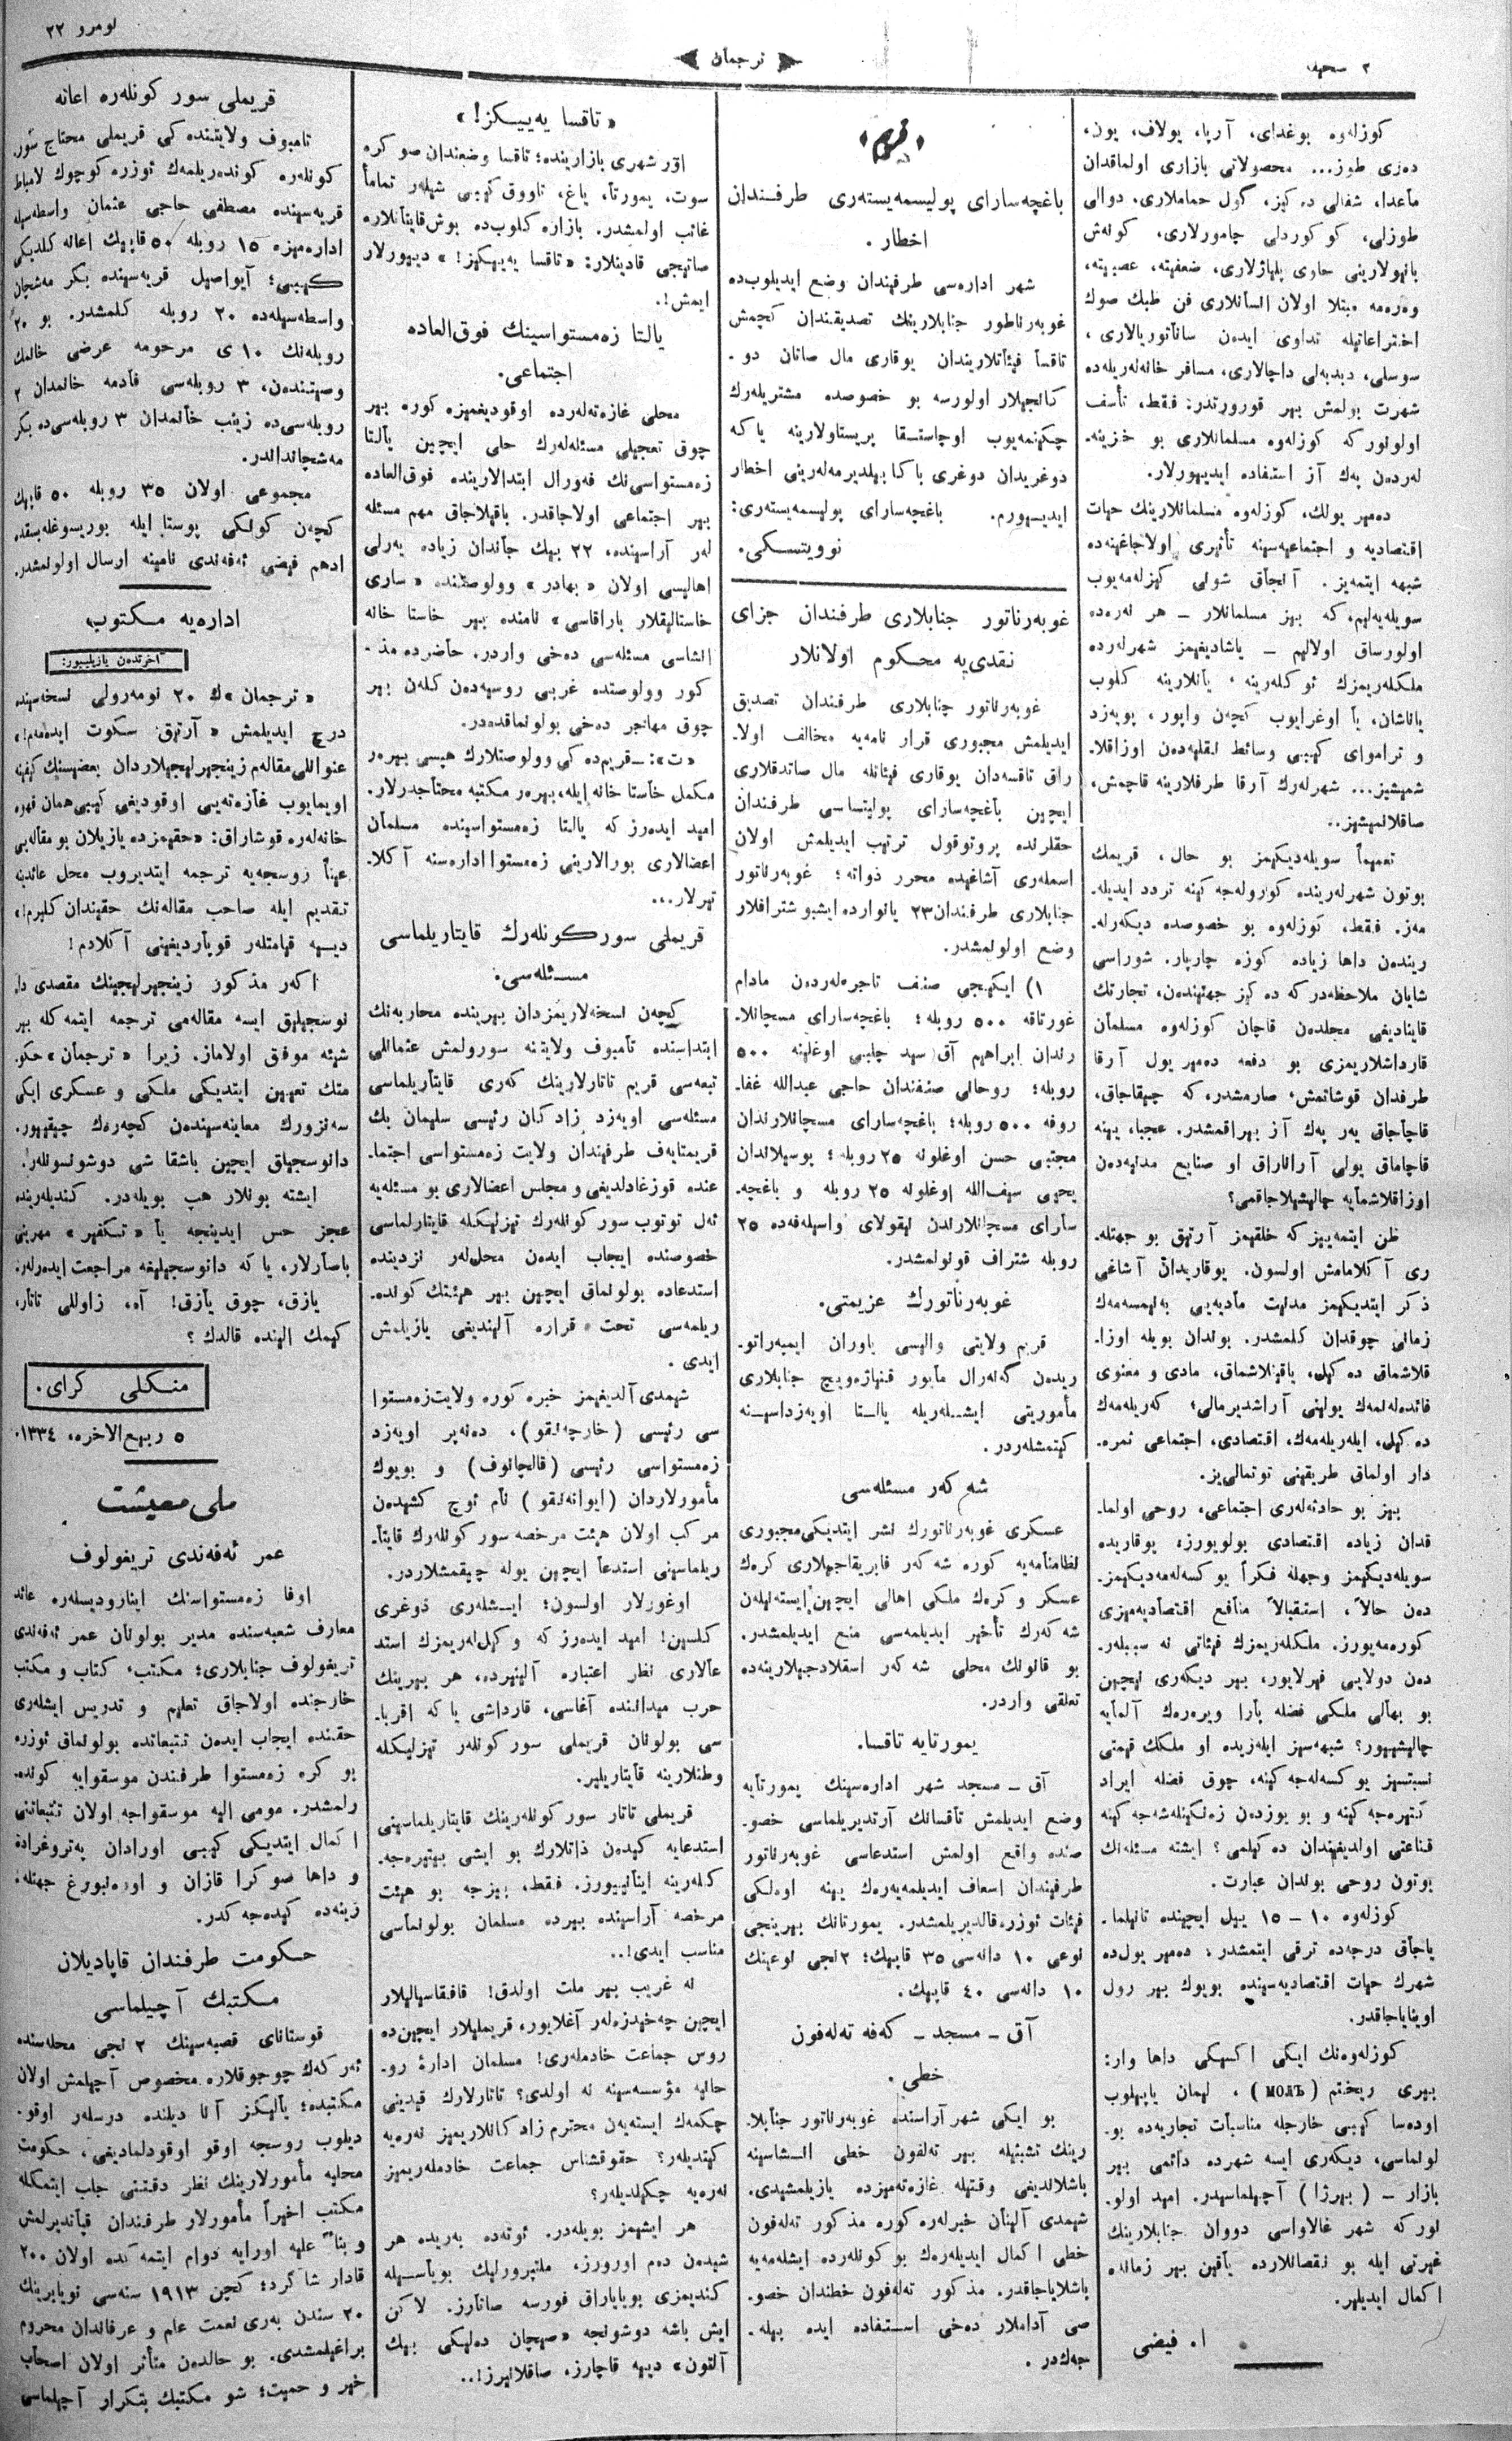 ۲ صحیفه
ترجمان
نومرو ۲۲
کوزلەوە بوغدای، آرپا، یولاف، یون،
دەری طوز... محصولاتی بازاری اولماقدان
ماعدا، شفالی دە کیز، گول حماملاری، دوالی
طوزلی، کوکوردلی چامورلاری، کونەش
بانیولارینی حاوی پلیاژلاری، ضعفیتە، عصبیتە،
وەرەمە مبتلا اولان انسانلاری فن طبك صوك
اختراعاتیلە تداوی ایدەن ساناتوریالاری،
سوسلی، دبدبەلی داچالاری، مسافر خانەلەریلەدە
شهرت بولمش بیر قورورتدر: فقط، تأسف
اولونور کە کوزلەوە مسلمانلاری بو خزینە۔
لەردن پەك آز استفادە ایدییورلار.
دەمیر یولك، کوزلەوە مسلمانلارینك حیات
اقتصادیە و اجتماعیەسینە تأثیری اولاجاغینەدە
شبهە ایتمەیز. آنجاق شونی گیزلەمەیوب
سویلەیەلیم، کە بیز مسلمانلار ــ هر نەرەدە
اولورساق اولالیم ــ یاشادیغیمز شهرلەردە
ملکلەریمزك ئوکلەرینە، یانلارینە کلوب
یاناشان، یا اوغرایوب کچەن واپور، پویەزد
و تراموای کیبی وسائط نقلیەدەن اوزاقلا۔
شمیشیز... شهرلەرك آرقا طرفلارینە قاچمش،
صاقلانمیشیز..
تعمیماً سویلەدیکیمز بو حال، قریمك
بوتون شهرلەریندە کورولەجە کینە تردد ایدیلە۔
مەز. فقط، کوزلەوە بو خصوصدە دیکەرلە۔
ریندەن داها زیادە کوزە چارپار. شوراسی
شایان ملاحظەدر کە دە کیز جهتیندەن، تجارتك
قاینادیغی محلدەن قاچان کوزلەوە مسلمان
قارداشلاریمزی بو دفعە دەمیر یول آرقا
طرفدان قوشاتمش، صارمشدر، کە چیقاجاق،
قاچاجاق یەر پەك آز بیراقمشدر. عجبا، یینە
قاچاماق یولی آراناراق او صنایع مدنیەدەن
اوزاقلاشمایە چالیشیلاجاقمی؟
ظن ایتمەییز کە خلقیمز آرتیق بو جهتلە۔
ری آکلامامش اولسون. یوقاریدان آشاغی
ذکر ایتدیکیمز مدنیت مادیەیی بەنیمسەمەك
زمانی چوقدان کلمشدر. بوندان بویلە اوزا۔
قلاشماق دە کیل، یاقینلاشماق، مادی و معنوی
فائدەلەنمەك یولینی آراشدیرمالی؛ کەریلەمەك
دە کیل، ایلەریلەمەك، اقتصادی، اجتماعی ثمرە۔
دار اولماق طریقینی توتمالی‌یز.
بیز بو حادثەلەری اجتماعی، روحی اولما۔
قدان زیادە اقتصادی بولویورز؛ یوقاریدە
سویلەدیکیمز وجهلە فکراً یوکسەلەمەدیکیمز۔
دەن حالاً، استقبالاً منافع اقتصادیەمیزی
کورەمەیورز. ملکلەریمزك قیئاتی نە سببلەر۔
دەن دولایی فیرلایور، بیر دیکەری ایچین
بو بهالی ملکی فضلە پارا ویرەرەك آلمایە
چالیشییور؟ شبهەسیز ایلەریدە او ملکك قیمتی
نسبتسیز یوکسەلەجە کینە، چوق فضلە ایراد
کتیرەجە کینە و بو یوزدن زەنکینلەشەجە کینە
قناعتی اولدیغیندان دە کیلمی؟ ایشتە مسئلەنك
بوتون روحی بوندان عبارت.
کوزلەوە ۱۰ ــ ۱۵ ییل ایچیندە تانیلما۔
یاجاق درجەدە ترقی ایتمشدر؛ دەمیر یول‌دە
شهرك حیات اقتصادیەسیندە بویوك بیر رول
اوینایاجاقدر.
کوزلەوەنك ایکی اکسیکی داها وار:
بیری ریختم (молъ)، لیمان یاپیلوب
اودەسا کیبی خارجلە مناسبات تجاریەدە بو۔
لونماسی، دیکەری ایسە شهردە دائمی بیر
بازار ــ (بیرژا) آچیلماسیدر. امید اولو۔
نورکە شهر غالاواسی دووان جنابلارینك
غیرتی ایلە بو نقصانلاردە یاقین بیر زماندە
اکمال ایدیلیر.
ا. فیضی
قریم
باغچەسارای پولیسمەیستەری طرفندان
اخطار.
شهر ادارەسی طرفیندان وضع ایدیلوب‌دە
غوبەرناطور جنابلارینك تصدیقیندان کچمش
تاقسا فیئاتلاریندان یوقاری مال صاتان دو۔
کانجیلار اولورسە بو خصوصدە مشتریلەرك
چکینمەیوب اوچاستــقا پریستاولارینە یاکە
دوغریدان دوغری باکا بیلدیرمەلەرینی اخطار
ایدیــیورم. باغچەسارای پولیسمەیستەری:
نوویتسکی.
غوبەرناتور جنابلاری طرفندان جزای
نقدی‌یە محکوم اولانلار
غوبەرناتور جنابلاری طرفندان تصدیق
ایدیلمش مجبوری قرار نامەیە مخالف اولا۔
راق تاقسەدان یوقاری فیئاتلە مال صاتدقلاری
ایچین باغچەسارای پولیتساسی طرفندان
حقلرندە پروتوقول ترتیب ایدیلمش اولان
اسملەری آشاغیدە محرر ذواتە؛ غوبەرناتور
جنابلاری طرفندان ۲۳ یانواردە ایشبو شترافلار
وضع اولونمشدر.
۱) ایکینجی صنف تاجرەلەردەن مادام
غورتاقە ۵۰۰ روبلە؛ باغچەسارای مسچانلا۔
رندان ابراهیم آق سید چلبی اوغلینە ۵۰۰
روبلە؛ روحانی صنفندان حاجی عبدالله غفا۔
روفە ۵۰۰ روبلە؛ باغچەسارای مسچانلارندان
مجتبی حسن اوغلونە ۲۵ روبلە؛ پوسیلاندان
یحیی سیف‌الله اوغلونە ۲۵ روبلە و باغچە۔
سارای مسچانلارندن نیقولای واسیلەفەدە ۲۵
روبلە شتراف قونولمشدر.
غوبەرناتورك عزیمتی.
قریم ولایتی والیسی یاوران ایمپەراتو۔
ریدەن گەنەرال مایور قنیاژەویچ جنابلاری
مأموریتی ایشــلەریلە یالــتا اویەزداسیــنە
کیتمشلەردر.
شەکەر مسئلەسی
عسکری غوبەرناتورك نشر ایتدیکی مجبوری
نظامنامەیە کورە شەکەر فابریقاجیلاری کرەك
عسکر و کرەك ملکی اهالی ایچین ایستەنیلەن
شەکەرك تأخیر ایدیلمەسی منع ایدیلمشدر.
بو قانونك محلی شەکەر اسقلادجیلارینەدە
تعلقی واردر.
یمورتایە تاقسا.
آق ــ مسجد شهر ادارەسینك یمورتایە
وضع ایدیلمش تاقسانك آرتدیریلماسی خصو۔
صندە واقع اولمش استدعاسی غوبەرناتور
طرفیندان اسعاف ایدیلمەیەرەك یینە اوەلکی
فیئات ئوزرە قالدیریلمشدر. یمورتانك بیرینجی
نوعی ۱۰ دانەسی ۳۵ قاپیك؛ ۲نجی نوعینك
۱۰ دانەسی ۴۰ قاپیك.
آق ــ مسجد ــ کەفە تەلەفون
خطی.
بو ایکی شهر آراسندە غوبەرناتور جنابلا۔
رینك تشبثیلە بیر تەلفون خطی انــشاسینە
باشلاندیغی وقتیلە غازەتەمیزدە یازیلمشیدی.
شیمدی آلینان خبرلەرە کورە مذکور تەلەفون
خطی اکمال ایدیلەرەك بو کونلەردە ایشلەمەیە
باشلایاجاقدر. مذکور تەلەفون خطندان خصو۔
صی آداملار دەخی اســتفادە ایدە بیلە۔
جەكدر.
«تاقسا یەیـیــکز!»
اؤر شهری بازاریندە؛ تاقسا وضعندان صوکرە
سوت، یمورتا، یاغ، تاووق کیبی شیلەر تماماً
غائب اولمشدر. بازارە کلوب‌دە بوش قایتانلارە
صاتیجی قادینلار: «تاقسا یەییکیز!» دییورلار
ایمش!.
یالتا زەمستواسینك فوق‌العادە
اجتماعی.
محلی غازەتەلەردە اوقودیغمیزە کورە بیر
چوق تعجیلی مسئلەلەرك حلی ایچین یالتا
زەمستواسی‌نك فەورال ابتدالاریندە فوق‌العادە
بیر اجتماعی اولاجاقدر. باقیلاجاق مهم مسئلە
لەر آراسیندە، ۲۲ بیك جاندان زیادە یەرلی
اهالیسی اولان «بهادر» وولوصتندە «ساری
خاستالیقلار باراقاسی» نامندە بیر خاستا خانە
انشاسی مسئلەسی دەخی واردر. حاضردە مذ۔
کور وولوصتدە غربی روسیەدەن کلەن بیر
چوق مهاجر دەخی بولونماقدەدر.
«ت»: ــ قریم‌دە کی وولوصتلارك هپسی بیرەر
مکمل خاستا خانە ایلە، بیرەر مکتبە محتاجدرلار.
امید ایدەرز کە یالتا زەمستواسیندە مسلمان
اعضالاری بورالارینی زەمستوا ادارەسنە آکلا۔
تیرلار...
قریملی سورکونلەرك قایتاریلماسی
مســئلەسی.
کچەن نسخەلاریمزدان بیریندە محاربەنك
ابتداسندە تامبوف ولایتنە سورولمش عثمانلی
تبعەسی قریم تاتارلارینك کەری قایتاریلماسی
مسئلەسی اویەزد زادکان رئیسی سلیمان بك
قریمتایەف طرفیندان ولایت زەمستواسی اجتما۔
عندە قوزغادلدیغی و مجلس اعضالاری بو مسئلەیە
ئەل توتوب سورکونلەرك تیزلیکلە قایتارلماسی
خصوصندە ایجاب ایدەن محل‌لەر نزدیندە
استدعادە بولونماق ایچین بیر هیئتك کوندە۔
ریلمەسی تحت قرارە آلیندیغی یازیلمش
ایدی.
شیمدی آلدیغیمز خبرە کورە ولایت زەمستوا
سی رئیسی (خارچەنقو)، دەنەپر اویەزد
زەمستواسی رئیسی (قالچانوف) و بویوك
مأمورلاردان (ایوانەنقو) نام ئوچ کشیدەن
مرکب اولان هیئت مرخصە سورکونلەرك قایتا۔
ریلماسینی استدعا ایچین یولە چیقمشلاردر.
اوغورلار اولسون؛ ایــشلەری دوغری
کلسین! امید ایدەرز کە وکیل‌لەریمزك استد
عالاری نظر اعتبارە آلینیردە، هر بیرینك
حرب میدانندە آغاسی، قارداشی یاکە اقربا۔
سی بولونان قریملی سورکونلەر تیزلیکلە
وطنلارینە قایتاریلیر.
قریملی تاتار سورکونلەرینك قایتاریلماسینی
استدعایە کیدەن ذاتلارك بو ایشی بیتیرەجە۔
کلەرینە اینانییورز. فقط، بیزجە بو هیئت
مرخصە آراسیندە بیردە مسلمان بولونماسی
مناسب ایدی!..
نە غریب بیر ملت اولدق! قافقاسیالیلار
ایچین چەخیدزەلەر آغلایور، قریملیلار ایچین‌دە
روس جماعت خادملەری! مسلمان ادارۀ رو۔
حانیە مؤسسەسینە نە اولدی؟ تاتارلارك قیدینی
چکمەك ایستەیەن محترم زادکانلاریمیز نەرەیە
کیتدیلەر؟ حقوقشناس جماعت خادملەریمیز
نەرەیە چکیلدیلەر؟
هر ایشیمز بویلەدر. ئوتەدە بەریدە هر
شیدەن دەم اورورز، ملتپرورلیك بویاســیلە
کندیمزی بویایاراق فورسە صاتارز. لاکن
ایش باشە دوشونجە «صیچان دەلیکی بیك
آلتون» دییە قاچارز، صاقلانیرز!..
قریملی سور کونلەرە اعانە
تامبوف ولایتندە کی قریملی محتاج سور۔
کونلەرە کوندەریلمەك ئوزرە کوچوك لامباط
قریەسیندە مصطفی حاجی عثمان واسطەسیلە
ادارەمیزە ۱۵ روبلە ۵۰ قاپیك اعانە کلدیکی
کیبی؛ آیواصیل قریەسیندە بکر مەشچان
واسطەسیلەدە ۲۰ روبلە کلمشدر. بو ۲۰
روبلەنك ۱۰ی مرحومە عرضی خانمك
وصیتندەن، ۳ روبلەسی فادمە خانمدان ۲
روبلەسی‌دە زینب خانمدان ۳ روبلەسی‌دە بکر
مەشچانداندر.
مجموعی اولان ۳۵ روبلە ۵۰ قاپیك
کچەن کونکی پوستا ایلە بوریسوغلەبسقدە
ادهم فیضی ئەفەندی نامینە ارسال اولونمشدر.
ادارەیە مــکتوب
آخرتدەن یازیلییور:
«ترجمان»ك ۲۰ نومەرولی نسخەسیندە
درج ایدیلمش «آرتیق سکوت ایدەمەم!»
عنوانلی مقالەم زینجیرلیجیلاردان بعضیسنك کیفینە
اویمایوب غازەتەیی اوقودیغی کیبی همان قهوە
خانەلەرە قوشاراق: «حقیمزدە یازیلان بو مقالەیی
عیناً روسجەیە ترجمە ایتدیروب محل عائدینە
تقدیم ایلە صاحب مقالەنك حقیندان کلیرم!»
دییە قیامتلەر قوپاردیغینی آکلادم!
اکەر مذکور زینجیرلیجینك مقصدی دا۔
نوسجیلیق ایسە مقالەمی ترجمە ایتمەکلە بیر
شیئە موفق اولاماز. زیرا «ترجمان» حکو۔
متك تعیین ایتدیکی ملکی و عسکری ایکی
سەنزورك معاینەسیندەن کچەرەك چیقییور.
دانوسجیلق ایچین باشقا شی دوشونسونلەر.
ایشتە بونلار هپ بویلەدر. کندیلەریندە
عجز حس ایدینجە یا «تــکفیر» مهرینی
باصارلار، یاکە دانوسجیلیغە مراجعت ایدەرلەر.
یازق، چوق یازق! آە، زاوللی تاتار،
کیمك الیندە قالدك؟
منــکلی کرای.
۵ ربیع‌الاخرە، ۱۳۳۴.
ملی معیشت
عمر ئەفەندی تریغولوف
اوفا زەمستواسنك اینارودیسلەرە عائد
معارف شعبەسندە مدیر بولونان عمر ئەفەندی
تریغولوف جنابلاری؛ مکتب، کتاب و مکتب
خارجندە اولاجاق تعلیم و تدریس ایشلەری
حقندە ایجاب ایدەن تتبعاتدە بولونماق ئوزرە
بو کرە زەمستوا طرفندن موسقوایە کوندە۔
رلمشدر. مومی الیە موسقواجە اولان تتبعاتنی
اکمال ایتدیکی کیبی اورادان پەتروغرادە
و داها صوکرا قازان و اورەنبورغ جهتلە۔
رینەدە کیدەجەکدر.
حــکومت طرفندان قاپادیلان
مــکتبك آچیلماسی
قوستانای قصبەسینك ۲ نجی محلەسندە
ئەرکەك چوجوقلارە مخصوص آچیلمش اولان
مکتبدە؛ یالیکز آنا دیلندە درسلەر اوقو۔
دیلوب روسجە اوقو اوقودلمادیغی، حکومت
محلیە مأمورلارینك نظر دقتنی جلب ایتمکلە
مکتب اخیراً مأمورلار طرفندان قپاندیرلمش
و بناءً علیە اورایە دوام ایتمەکدە اولان ۲۰۰
قادار شاکرد؛ کچن ۱۹۱۳ سنەسی نویابرینك
۲۰ سندن بەری نعمت علم و عرفاندان محروم
براغیلمشدی. بو حالدەن متأثر اولان اصحاب
خیر و حمیت؛ شو مکتبك بتکرار آچیلماسی